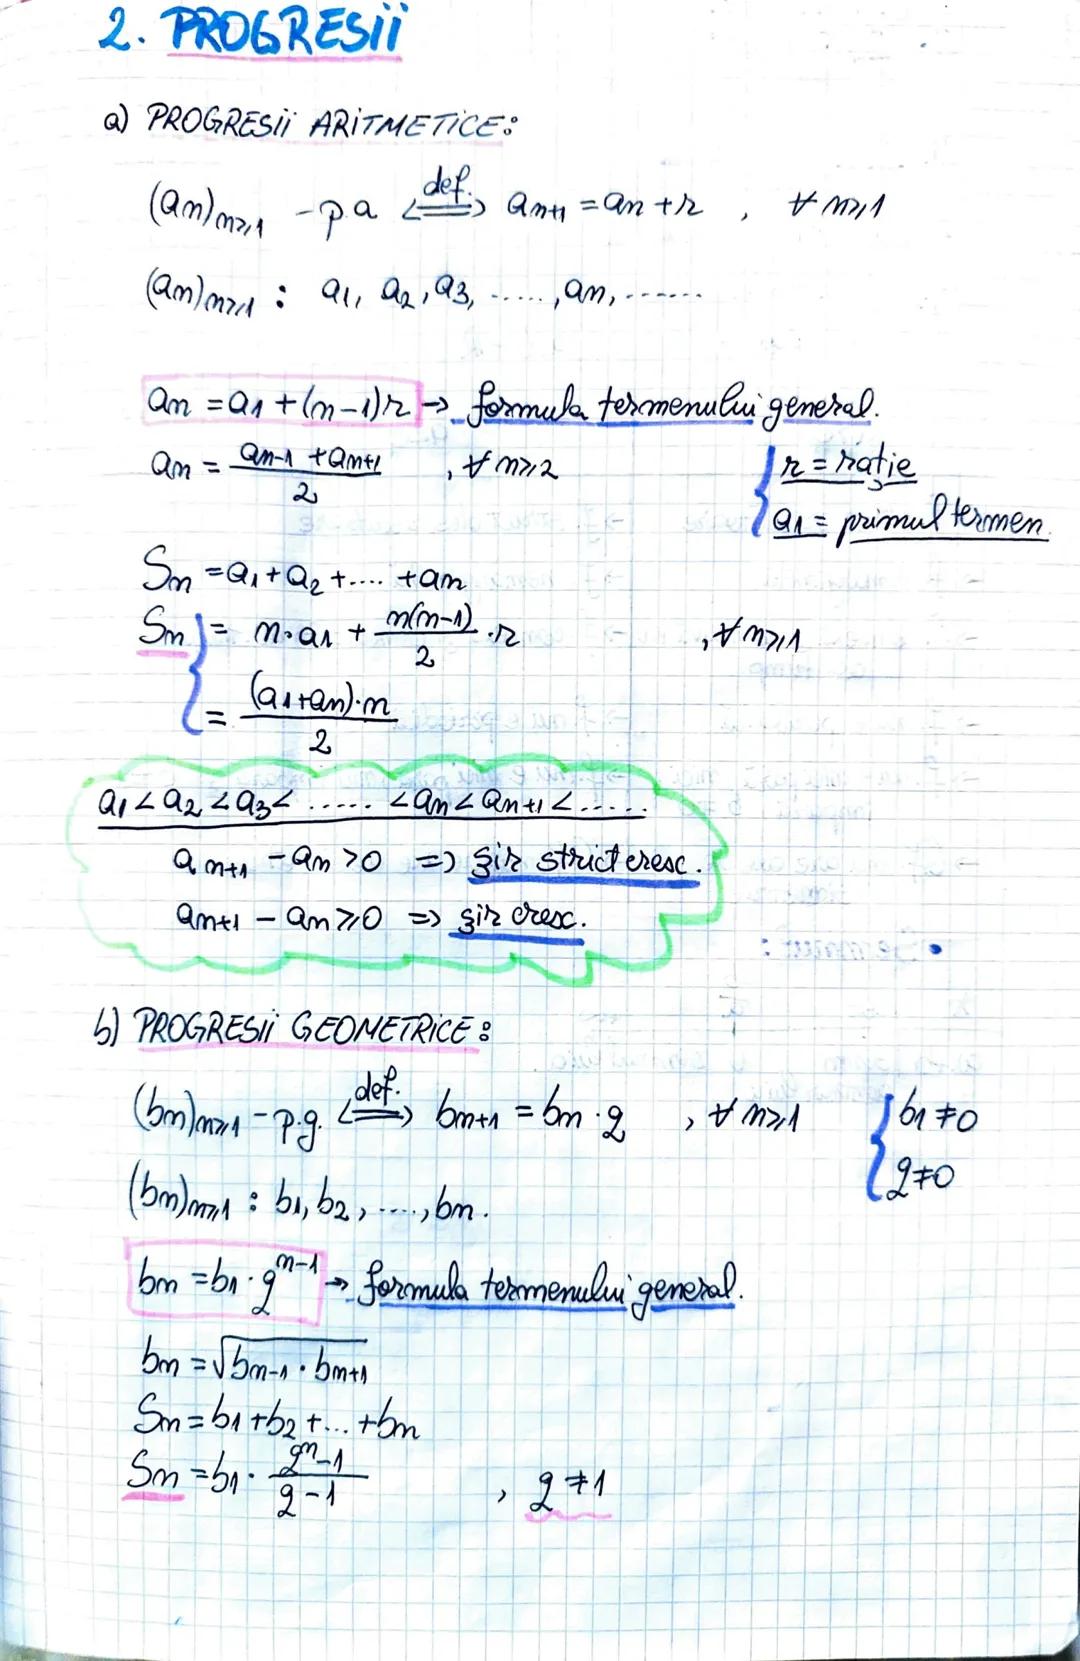 2. PROGRESII
a) PROGRESII ARITMETICE:
(aₙ)ₙ≥₁ - p.a <=def.=> aₙ₊₁ = aₙ + r , ∀ n≥1
(aₙ)ₙ≥₁ : a₁, a₂, a₃, ....., aₙ, ......
aₙ = a₁ + (n-1)r → formula termenului general.
aₙ = (aₙ₋₁ + aₙ₊₁)/2 , ∀ n≥2 { r = rație
a₁ = primul termen.
Sₙ = a₁ + a₂ + .... + aₙ
Sₙ { = n·a₁ + n(n-1)/2 · r , ∀ n≥1
= (a₁+aₙ)·n / 2
a₁ < a₂ < a₃ < ..... < aₙ < aₙ₊₁ < .....
aₙ₊₁ - aₙ > 0 => șir strict cresc.
aₙ₊₁ - aₙ ≥ 0 => șir cresc.
b) PROGRESII GEOMETRICE:
(bₙ)ₙ≥₁ - p.g. <=def.=> bₙ₊₁ = bₙ · q , ∀ n≥1 { b₁ ≠ 0
q ≠ 0
(bₙ)ₙ≥₁ : b₁, b₂, ...., bₙ.
bₙ = b₁ · qⁿ⁻¹ → formula termenului general.
bₙ = √(bₙ₋₁ · bₙ₊₁)
Sₙ = b₁ + b₂ + ... + bₙ
Sₙ = b₁ · (qⁿ - 1)/(q - 1) , q ≠ 1